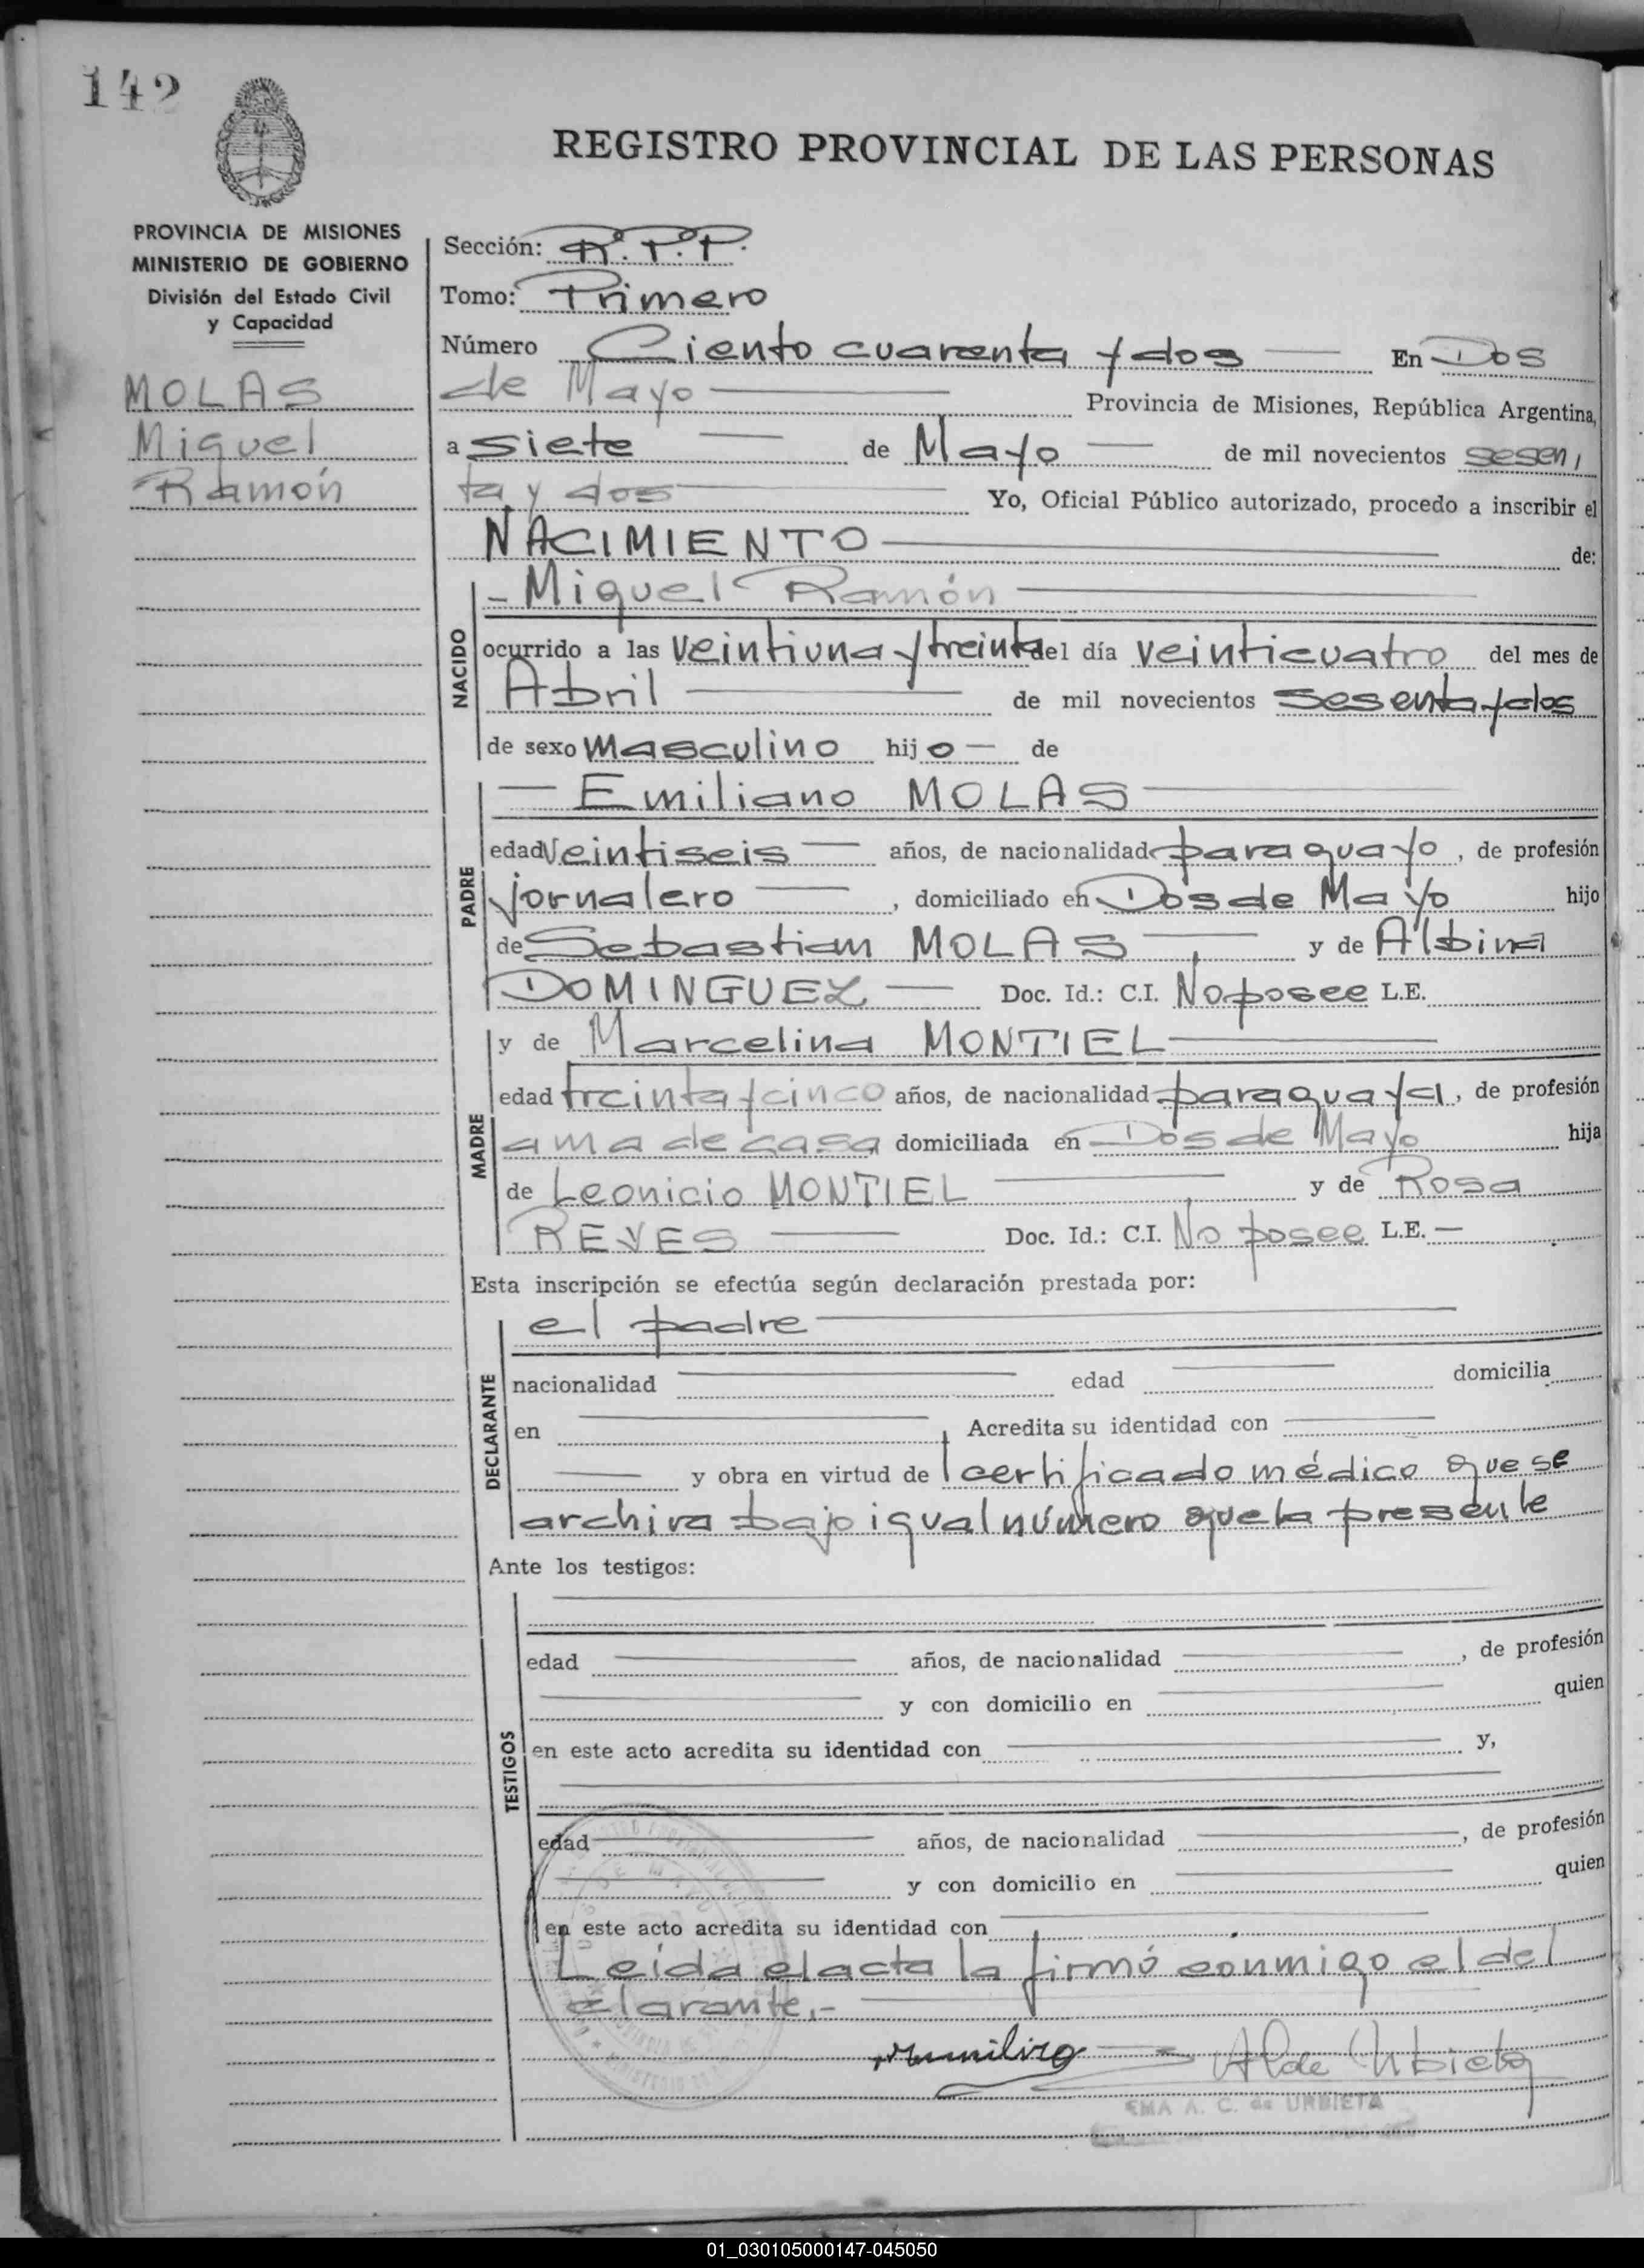 142
REGISTRO PROVINCIAL DE LAS PERSONAS
PROVINCIA DE MISIONES
MINISTERIO DE GOBIERNO
División del Estado Civil
y Capacidad
MOLAS
Miguel
Ramón
Sección: R.P.P.
Tomo: Primero
Número Ciento cuarenta y dos En Dos
de Mayo Provincia de Misiones, República Argentina,
a siete de Mayo de mil novecientos sesen,
ta y dos Yo, Oficial Público autorizado, procedo a inscribir el
NACIMIENTO de:
NACIDO
- Miguel Ramón
ocurrido a las veintiuna y treinta del día veinticuatro del mes de
Abril de mil novecientos sesenta y dos
de sexo masculino hijo de
PADRE
Emiliano MOLAS
edad veintiseis años, de nacionalidad paraguayo, de profesión
jornalero, domiciliado en Dos de Mayo hijo
de Sebastian MOLAS y de Albina
DOMINGUEZ Doc. Id.: C.I. No posee L.E.
MADRE
y de Marcelina MONTIEL
edad treinta y cinco años, de nacionalidad paraguaya, de profesión
ama de casa domiciliada en Dos de Mayo hija
de Leonicio MONTIEL y de Rosa
REYES Doc. Id.: C.I. No posee L.E. —
Esta inscripción se efectúa según declaración prestada por:
DECLARANTE
el padre
nacionalidad edad domicilia
en Acredita su identidad con
y obra en virtud de certificado médico que se
archiva bajo igual número que la presente
Ante los testigos:
TESTIGOS
edad años, de nacionalidad , de profesión
y con domicilio en quien
en este acto acredita su identidad con y,
edad años, de nacionalidad , de profesión
y con domicilio en quien
en este acto acredita su identidad con
Leída el acta la firmó conmigo el del
clarante.-
A de Urbieta
EMA A. C. de URBIETA
01_030105000147-045050